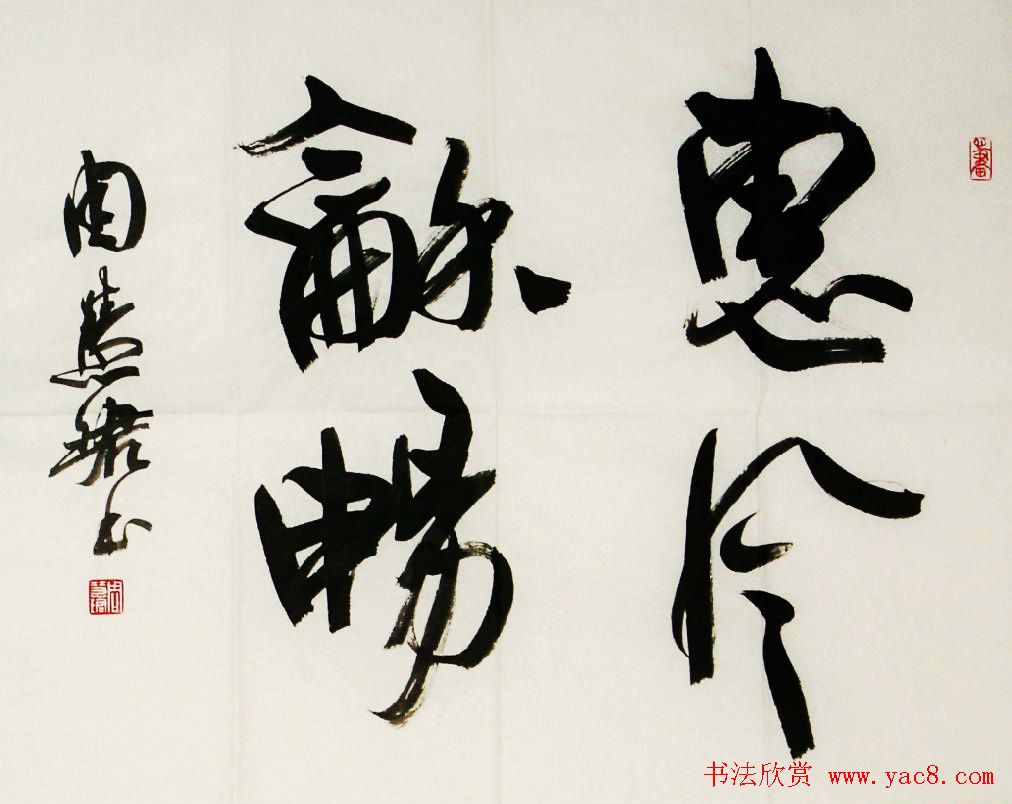 惠風
龢暢
周慧珺书
书法欣赏 www.yac8.com